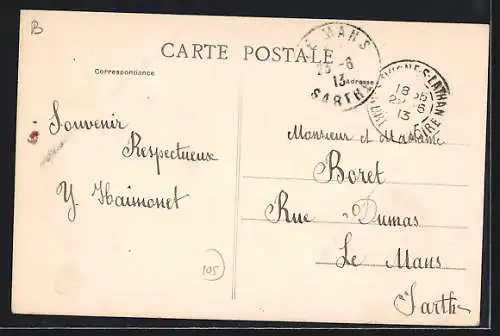 B
CARTE POSTALE
Correspondance
Adresse
LE MANS
23 -6
13
SARTHE
18 35
22 -6
13
Souvenir
Respectueux
Y. Haimonet
105
Monsieur et Madame
Boret
Rue Dumas
Le Mans
Sarthe